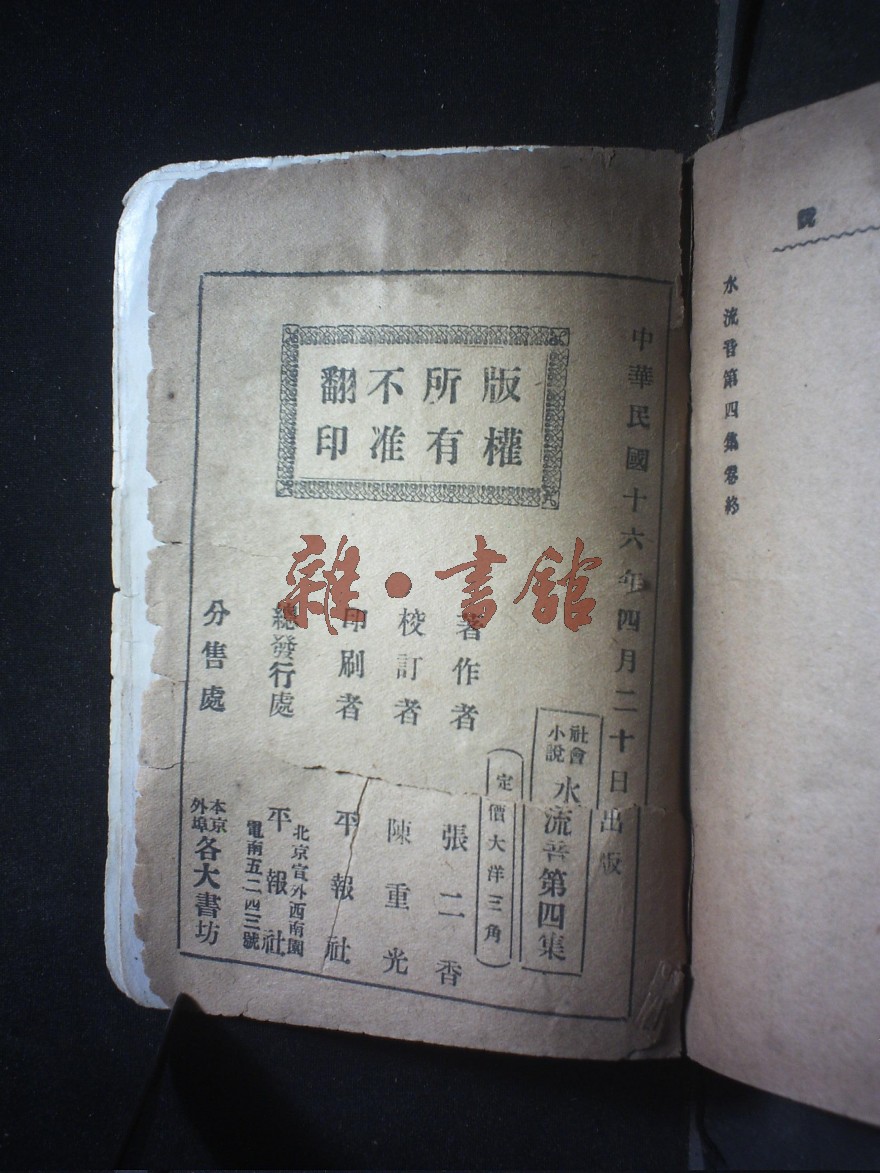 說
水流音第四集卷終
中華民國十六年四月二十日出版
版權
所有
不准
翻印
社會
小說
水流音第四集
定價大洋三角
著作者 張二香
校訂者 陳重光
印刷者 平報社
總發行處 平報社
北京宣外西南園
電南五二四三號
分售處 本京
外埠
各大書坊
雜·書館